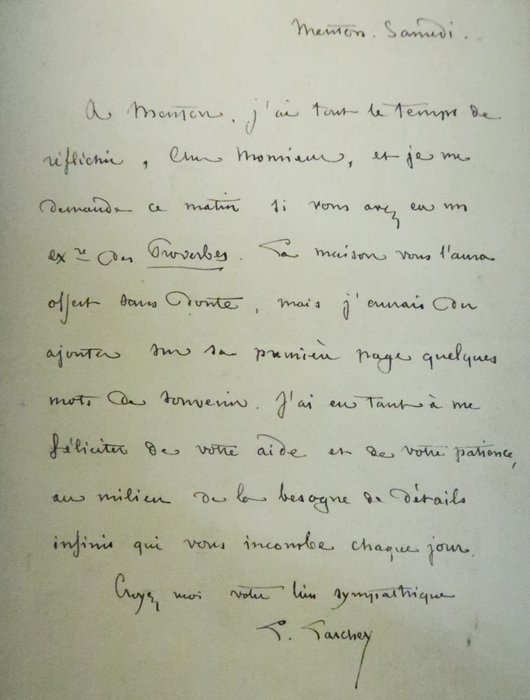 Menton. Samedi.
A Menton, j'ai tout le temps de
réfléchir, Cher Monsieur, et je me
demande ce matin si vous avez eu un
exre des Proverbes. La maison vous l'aura
offert sans doute, mais j'aurais du
ajouter sur sa première page quelques
mots de souvenir. J'ai eu tant à me
féliciter de votre aide et de votre patience,
au milieu de la besogne de détails
infinis qui vous incombe chaque jour.
Croyez moi votre bien sympathique
L. Larchey